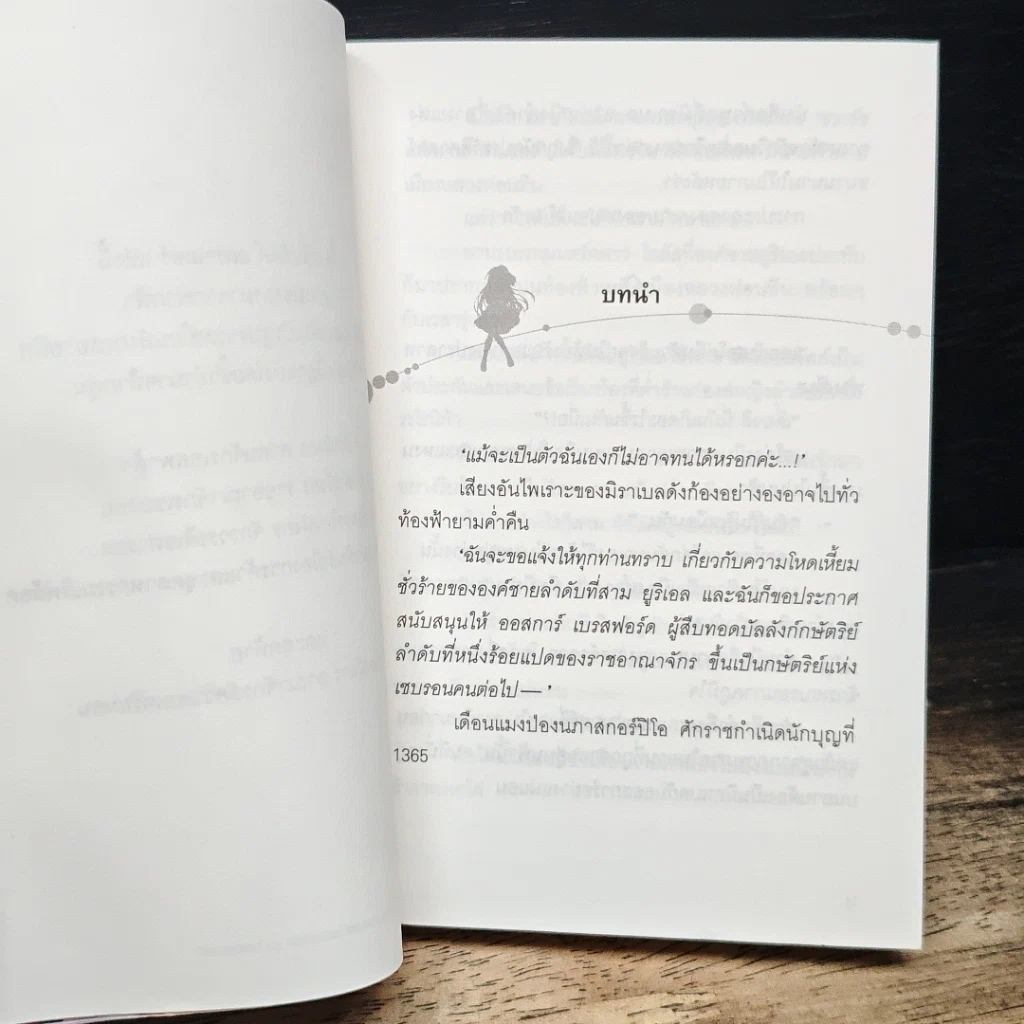 บทนำ
‘แม้จะเป็นตัวฉันเองก็ไม่อาจทนได้หรอกค่ะ...!’
เสียงอันไพเราะของมิราเบลดังก้องอย่างองอาจไปทั่ว
ท้องฟ้ายามค่ำคืน
‘ฉันจะขอแจ้งให้ทุกท่านทราบ เกี่ยวกับความโหดเหี้ยม
ชั่วร้ายขององค์ชายลำดับที่สาม ยูริเอล และฉันก็ขอประกาศ
สนับสนุนให้ ออสการ์ เบรสฟอร์ด ผู้สืบทอดบัลลังก์กษัตริย์
ลำดับที่หนึ่งร้อยแปดของราชอาณาจักร ขึ้นเป็นกษัตริย์แห่ง
เซบรอนคนต่อไป—’
เดือนแมงป่องนภาสกอร์ปิโอ ศักราชกำเนิดนักบุญที่
1365